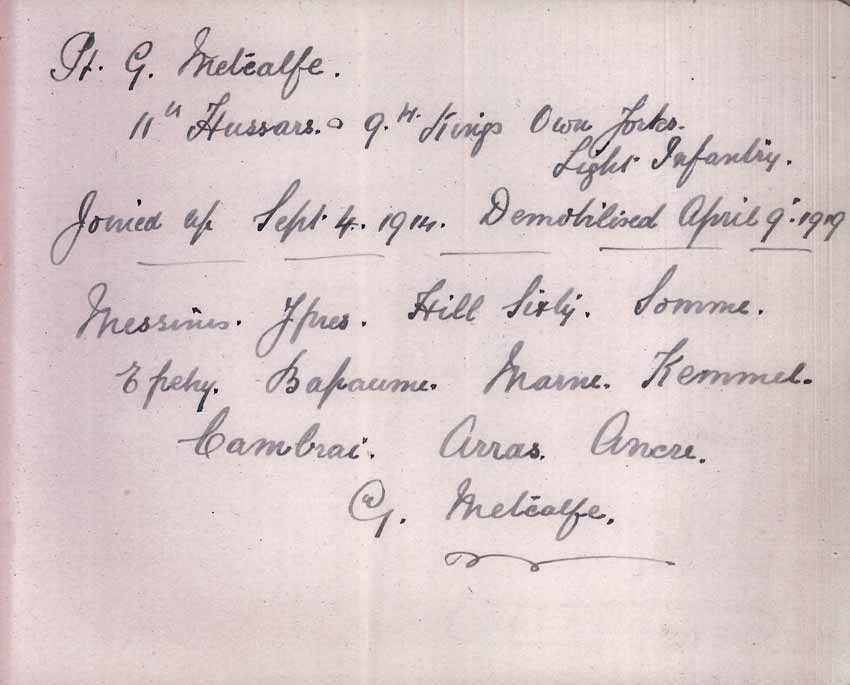 Pt. G. Metcalfe.
11th Hussars. & 9.th Kings Own Yorks.
Light Infantry.
Joined up Sept. 4. 1914. Demobilised April 9. 1919
Messines. Ypres. Hill Sixty. Somme.
Epehy. Bapaume. Marne. Kemmel.
Cambrai. Arras. Ancre.
G. Metcalfe.